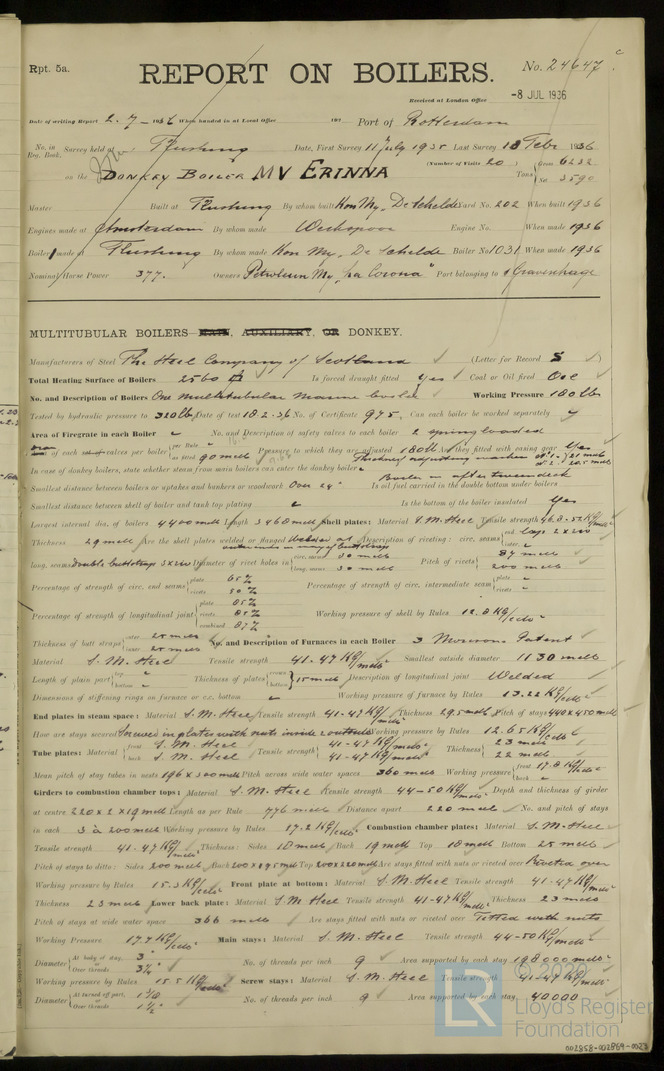 Rpt. 5a.
No. 24647
REPORT ON BOILERS.
Received at London Office -8 JUL 1936
Date of writing Report 2-7-1936 When handed in at Local Office 193 Port of Rotterdam
No. in Reg. Book. Survey held at Flushing Date, First Survey 11 July 1935 Last Survey 18 Febr 1936
on the DONKEY BOILER MV ERINNA (Number of Visits 20) Tons Gross 6232 Net 3590
Master Built at Flushing By whom built Kon My. De Schelde Yard No. 202 When built 1936
Engines made at Amsterdam By whom made Werkspoor Engine No. When made 1936
Boiler made at Flushing By whom made Kon My. De Schelde Boiler No 1031 When made 1936
Nominal Horse Power 377. Owners Petroleum My. "La Corona" Port belonging to s'Gravenhage
MULTITUBULAR BOILERS MAIN, AUXILIARY, OR DONKEY.
Manufacturers of Steel The Steel Company of Scotland (Letter for Record S)
Total Heating Surface of Boilers 2560 Is forced draught fitted Yes Coal or Oil fired Oil
No. and Description of Boilers One multitubular Marine boiler Working Pressure 180 lb
Tested by hydraulic pressure to 320 lb Date of test 18-2-36 No. of Certificate 975 Can each boiler be worked separately
Area of Firegrate in each Boiler No. and Description of safety valves to each boiler 2 springloaded
of each set of valves per boiler per Rule as fitted 90 mm Pressure to which they are adjusted 180 lb Are they fitted with easing gear Yes
In case of donkey boilers, state whether steam from main boilers can enter the donkey boiler
Smallest distance between boilers or uptakes and bunkers or woodwork Over 24" Is oil fuel carried in the double bottom under boilers
Smallest distance between shell of boiler and tank top plating Is the bottom of the boiler insulated Yes
Largest internal dia. of boilers 4400 Length 3460 Shell plates: Material S.M. Steel Tensile strength
Thickness 29 Are the shell plates welded or flanged Description of riveting: circ. seams end laps 2 x riv
long. seams Double buttstraps 3 x riv Diameter of rivet holes in circ. seams 30 long. seams 30 Pitch of rivets 87 200
Percentage of strength of circ. end seams plate 65% rivets 50% Percentage of strength of circ. intermediate seam plate rivets
Percentage of strength of longitudinal joint plate 85% rivets 85% combined 87% Working pressure of shell by Rules 12.8 KG/
Thickness of butt straps outer 25 inner 25 No. and Description of Furnaces in each Boiler 3 Morison Patent
Material S. M. Steel Tensile strength 41-47 KG/ Smallest outside diameter 1130
Length of plain part top bottom Thickness of plates crown bottom 15 Description of longitudinal joint Welded
Dimensions of stiffening rings on furnace or c.c. bottom Working pressure of furnace by Rules 13.22 KG/
End plates in steam space: Material S. M. Steel Tensile strength 41-47 KG/ Thickness 29.5 Pitch of stays 440 x 450
How are stays secured Screwed in plates with nuts inside & outside Working pressure by Rules 12.65 KG/
Tube plates: Material front S. M. Steel back S. M. Steel Tensile strength 41-47 KG/ 41-47 KG/ Thickness 23 22
Mean pitch of stay tubes in nests 196 x 300 Pitch across wide water spaces 360 Working pressure front 17.8 KG/ back
Girders to combustion chamber tops: Material S. M. Steel Tensile strength 44-50 KG/ Depth and thickness of girder
at centre 220 x 2 x 19 Length as per Rule 776 Distance apart 220 No. and pitch of stays
in each 3 à 200 Working pressure by Rules 17.2 KG/ Combustion chamber plates: Material S. M. Steel
Tensile strength 41-47 KG/ Thickness: Sides 18 Back 19 Top 18 Bottom 25
Pitch of stays to ditto: Sides 200 Back 200 x 195 Top 200 x 220 Are stays fitted with nuts or riveted over Riveted over
Working pressure by Rules 15.3 KG/ Front plate at bottom: Material S. M. Steel Tensile strength 41-47 KG/
Thickness 23 Lower back plate: Material S. M. Steel Tensile strength 41-47 KG/ Thickness 23
Pitch of stays at wide water space 366 Are stays fitted with nuts or riveted over Fitted with nuts
Working Pressure 17.7 KG/ Main stays: Material S. M. Steel Tensile strength 44-50 KG/
Diameter At body of stay, 3" Over threads 3¼" No. of threads per inch 9 Area supported by each stay 198000
Working pressure by Rules 15.5 KG/ Screw stays: Material S. M. Steel Tensile strength 41-47 KG/
Diameter At turned off part, Over threads 1½" No. of threads per inch 9 Area supported by each stay 40000
LR
Lloyd's Register Foundation
002858-002869-0023